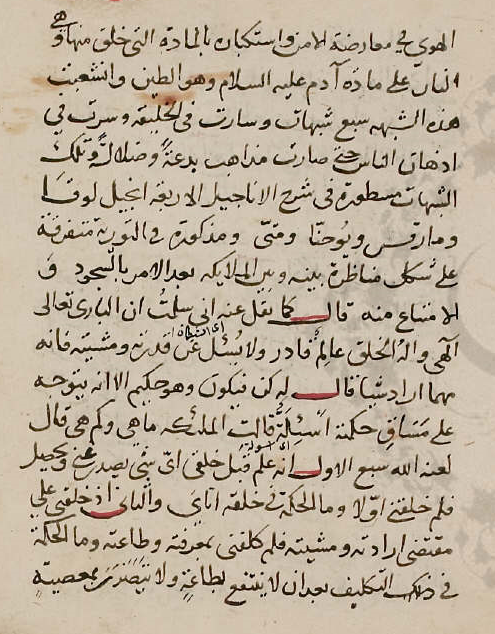 الهوى في معارضة الامر واستكباره بالمادة التي خلق منها وهي
النار على مادة آدم عليه السلام وهو الطين وانشعبت
هذه الشبهه سبع شبهات وسارت في الخليقه وسرت في
اذهان الناس حتى صارت مذاهب بدعةٍ وضلالةٍ وتلك
الشبهات مسطورة في شرح الاناجيل الاربعه انجيل لوقا
ومارقس ويوحنا ومتى ومذكورة في التورية متفرقة
على شكل مناظرة بينه وبين الملايكه بعد الامر بالسجود و
الامتناع منه قال كما نقل عنه اني سلمت ان البارى تعالى
الهى واله الخلق عالمٌ قادر ولا يسئل عن قدرته ومشيته فانه
مهما اراد شيا قال له كن فيكون وهو حكيم الا انه يتوجه
على مساق حكمته اسئلةٌ قالت الملئكه ما هى وكم هي قال
لعنه الله سبع الاول انه علم قبل خلقى اى شئ يصدر عنى ويحصل
فلم خلقني اولا وما الحكمة في خلقه اياى والثانى اذ خلقني على
مقتضى ارادته ومشيته فلم كلفنى بمعرفته وطاعته وما الحكمة
في ذلك التكليف بعد ان لا ينتفع بطاعةٍ ولا يتضرر بمعصيةٍ